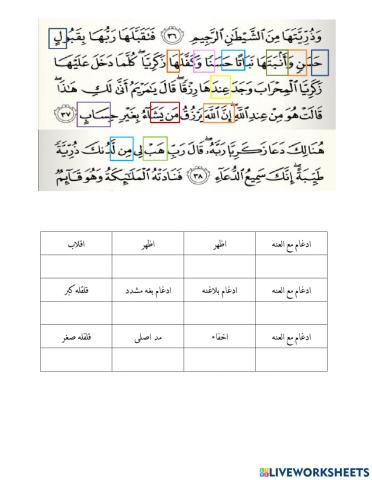 وَذُرِّيَّتَهَا مِنَ الشَّيْطَٰنِ الرَّجِيمِ ٣٦ فَتَقَبَّلَهَا رَبُّهَا بِقَبُولٍ
حَسَنٍ وَأَنۢبَتَهَا نَبَاتًا حَسَنًا وَكَفَّلَهَا زَكَرِيَّا كُلَّمَا دَخَلَ عَلَيْهَا
زَكَرِيَّا الْمِحْرَابَ وَجَدَ عِندَهَا رِزْقًا قَالَ يَٰمَرْيَمُ أَنَّىٰ لَكِ هَٰذَا
قَالَتْ هُوَ مِنْ عِندِ اللَّهِ إِنَّ اللَّهَ يَرْزُقُ مَن يَشَآءُ بِغَيْرِ حِسَابٍ ٣٧
هُنَالِكَ دَعَا زَكَرِيَّا رَبَّهُۥ قَالَ رَبِّ هَبْ لِي مِن لَّدُنكَ ذُرِّيَّةً
طَيِّبَةً إِنَّكَ سَمِيعُ الدُّعَآءِ ٣٨ فَنَادَتْهُ الْمَلَٰٓئِكَةُ وَهُوَ قَآئِمٌ
ادغام مع الغنه اظهر اظهر اقلاب
ادغام مع الغنه ادغام بلاغنه ادغام بغه مشدد قلقله كبر
ادغام مع الغنه اخفاء مد اصلى قلقله صغر
LIVEWORKSHEETS